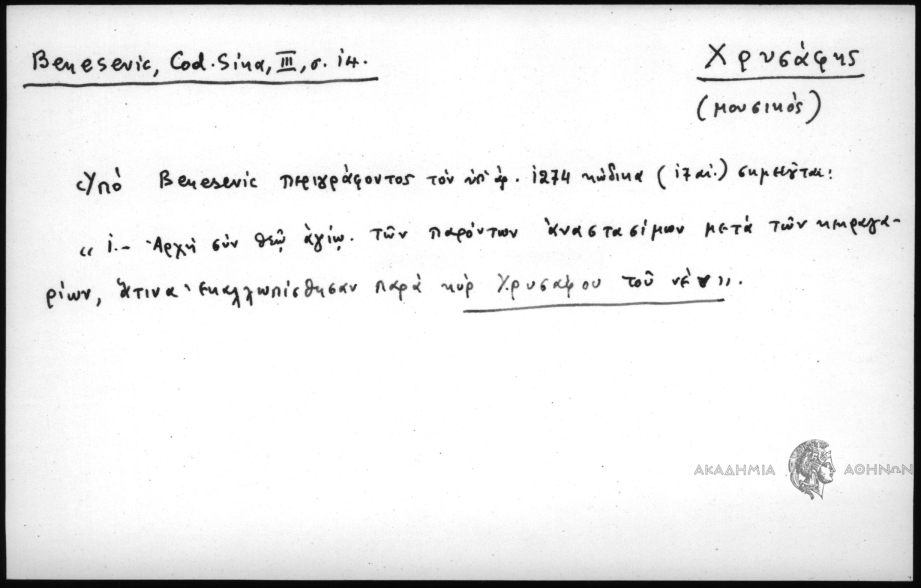 Benesevic, Cod. Sina, III, σ. 14.
Χρυσάφης
(μουσικός)
Ὑπό Benesevic περιγράφοντος τόν ὑπ' ἀρ. 1274 κώδικα (17 αἰ.) σημειοῦται:
„ 1.- Ἀρχή σύν θεῷ ἁγίῳ. τῶν παρόντων ἀναστασίμων μετά τῶν κεκραγα-
ρίων, ἅτινα ἐκαλλωπίσθησαν παρά κύρ Χρυσάφου τοῦ νέου".
ΑΚΑΔΗΜΙΑ ΑΘΗΝΩΝ